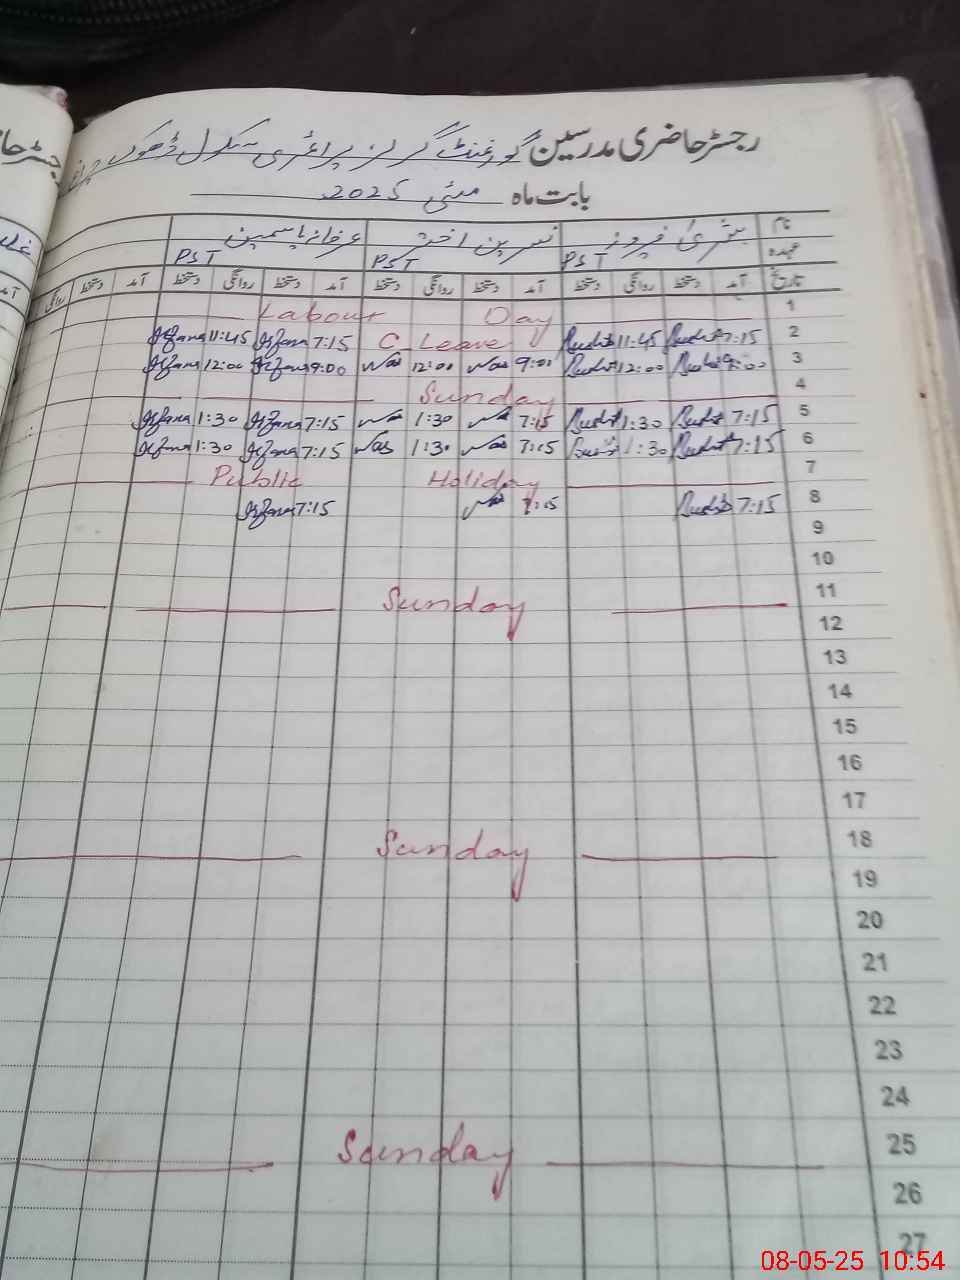 رجسٹر حاضری مدرسین گورنمنٹ گرلز پرائمری سکول ڈھوک
بابت ماہ مئی 2025
نام بشریٰ فیروز نسرین اختر عرفانہ یاسمین
عہدہ PST PST PST
تاریخ آمد دستخط روانگی دستخط آمد دستخط روانگی دستخط آمد دستخط روانگی دستخط آمد دستخط روانگی
Labour Day 1
Irfana 11:45 Irfana 7:15 C Leave Bushra 11:45 Bushra 7:15 2
Irfana 12:00 Irfana 9:00 Nas 12:00 Nas 9:00 Bushra 12:00 Bushra 9:00 3
Sunday 4
Irfana 1:30 Irfana 7:15 Nas 1:30 Nas 7:15 Bushra 1:30 Bushra 7:15 5
Irfana 1:30 Irfana 7:15 Nas 1:30 Nas 7:15 Bushra 1:30 Bushra 7:15 6
Public Holiday 7
Irfana 7:15 Nas 7:15 Bushra 7:15 8
9
10
Sunday 11
12
13
14
15
16
17
Sunday 18
19
20
21
22
23
24
Sunday 25
26
27
08-05-25 10:54